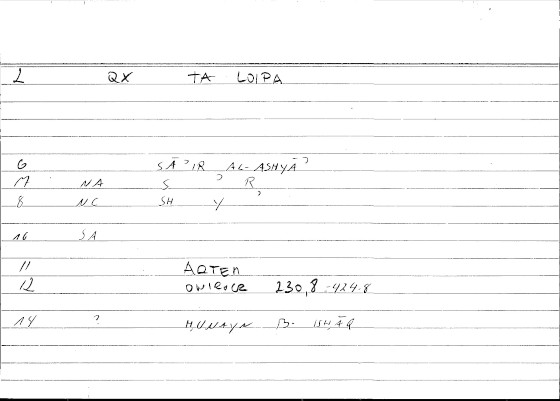 L QX TA LOIPA
6 SĀʾIR AL-ASHYĀʾ
17 NA S ʾ R
8 NC SH Y ʾ
16 SA
11 ARTEM
12 230,8 :424.8
14 ? ḤUNAYN B- ISḤĀQ